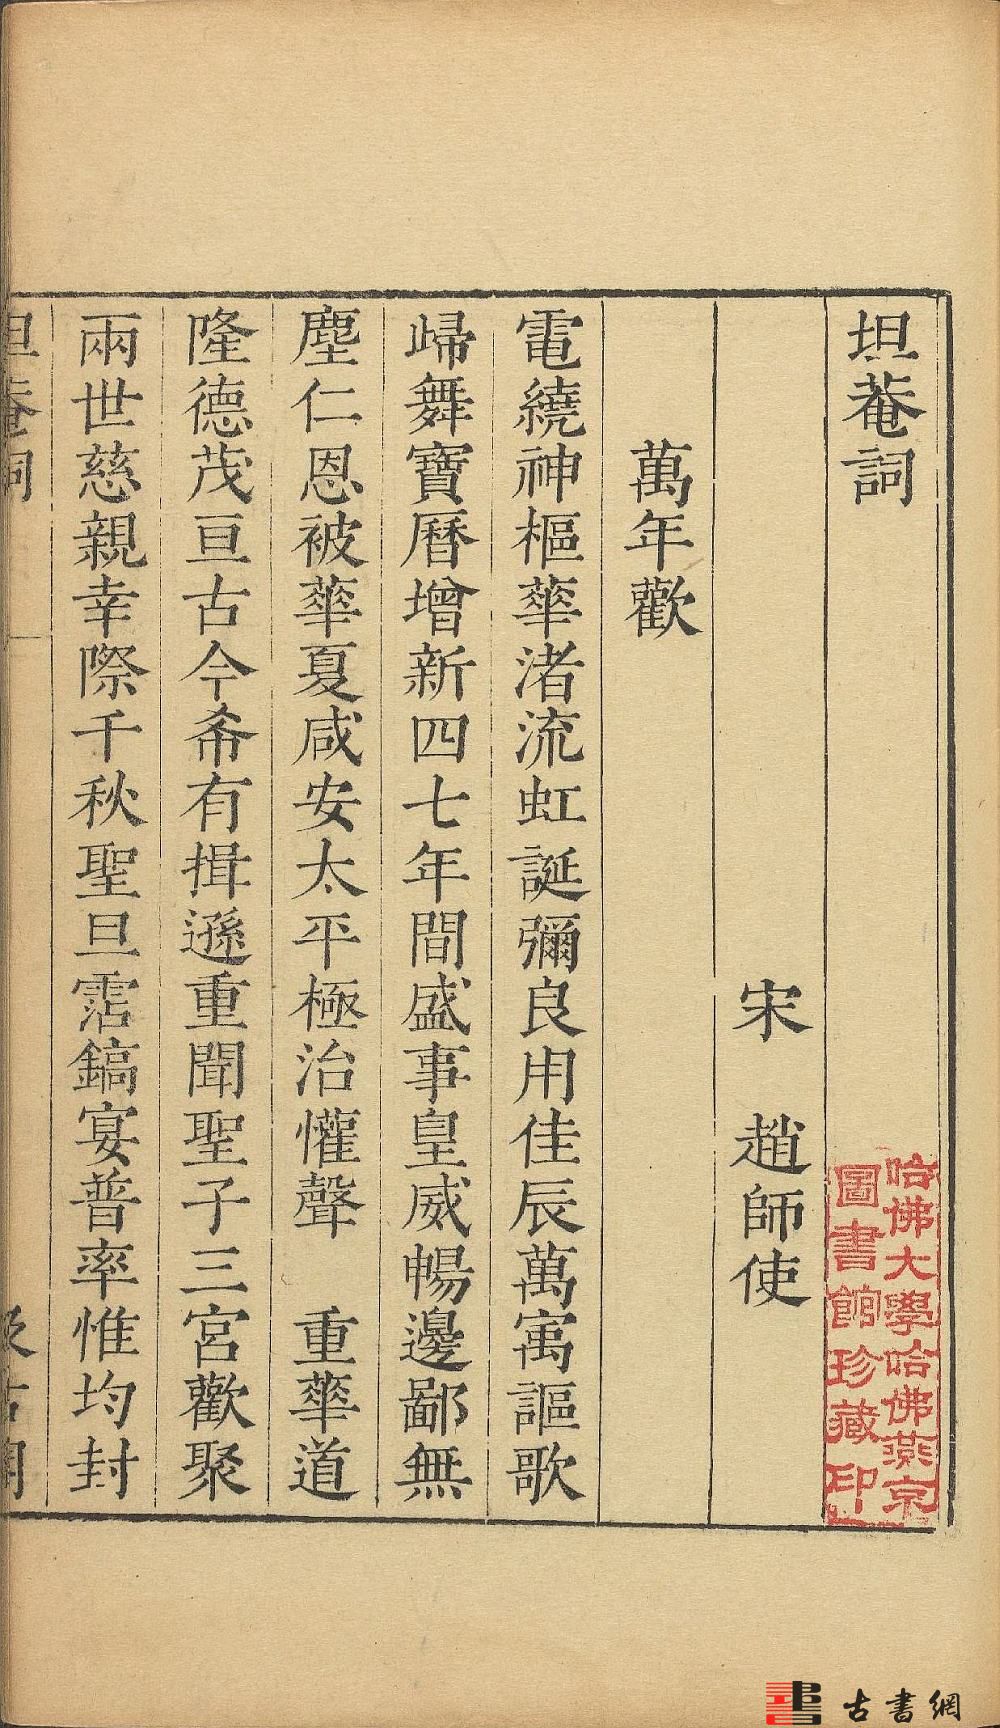 坦菴詞
宋　趙師使
萬年歡
電繞神樞華渚流虹誕彌良用佳辰萬寓謳歌
歸舞寶曆增新四七年間盛事皇威暢邊鄙無
塵仁恩被華夏咸安太平極治懽聲　重華道
隆德茂亘古今希有揖遜重聞聖子三宮歡聚
兩世慈親幸際千秋聖旦霑鎬宴普率惟均封
坦菴詞　一　汲古閣
哈佛大學哈佛燕京
圖書館珍藏印
古書網